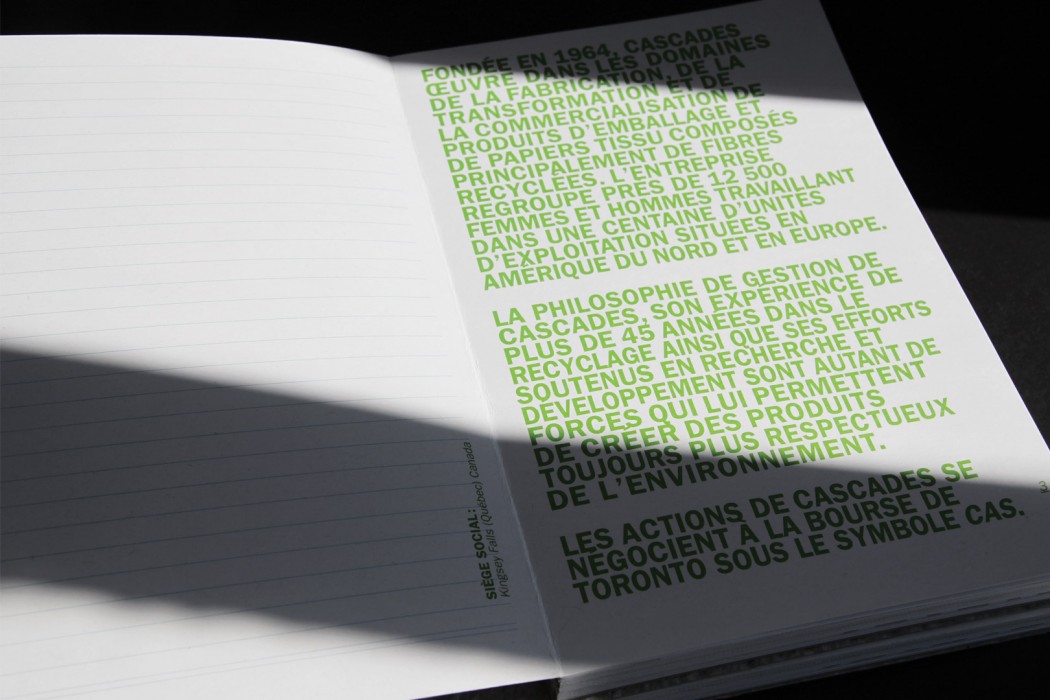 SIÈGE SOCIAL:
Kingsey Falls (Québec) Canada
FONDÉE EN 1964, CASCADES
ŒUVRE DANS LES DOMAINES
DE LA FABRICATION, DE LA
TRANSFORMATION ET DE
LA COMMERCIALISATION DE
PRODUITS D'EMBALLAGE ET
DE PAPIERS TISSU COMPOSÉS
PRINCIPALEMENT DE FIBRES
RECYCLÉES. L'ENTREPRISE
REGROUPE PRÈS DE 12 500
FEMMES ET HOMMES TRAVAILLANT
DANS UNE CENTAINE D'UNITÉS
D'EXPLOITATION SITUÉES EN
AMÉRIQUE DU NORD ET EN EUROPE.
LA PHILOSOPHIE DE GESTION DE
CASCADES, SON EXPÉRIENCE DE
PLUS DE 45 ANNÉES DANS LE
RECYCLAGE AINSI QUE SES EFFORTS
SOUTENUS EN RECHERCHE ET
DÉVELOPPEMENT SONT AUTANT DE
FORCES QUI LUI PERMETTENT
DE CRÉER DES PRODUITS
TOUJOURS PLUS RESPECTUEUX
DE L'ENVIRONNEMENT.
LES ACTIONS DE CASCADES SE
NÉGOCIENT À LA BOURSE DE
TORONTO SOUS LE SYMBOLE CAS.
3